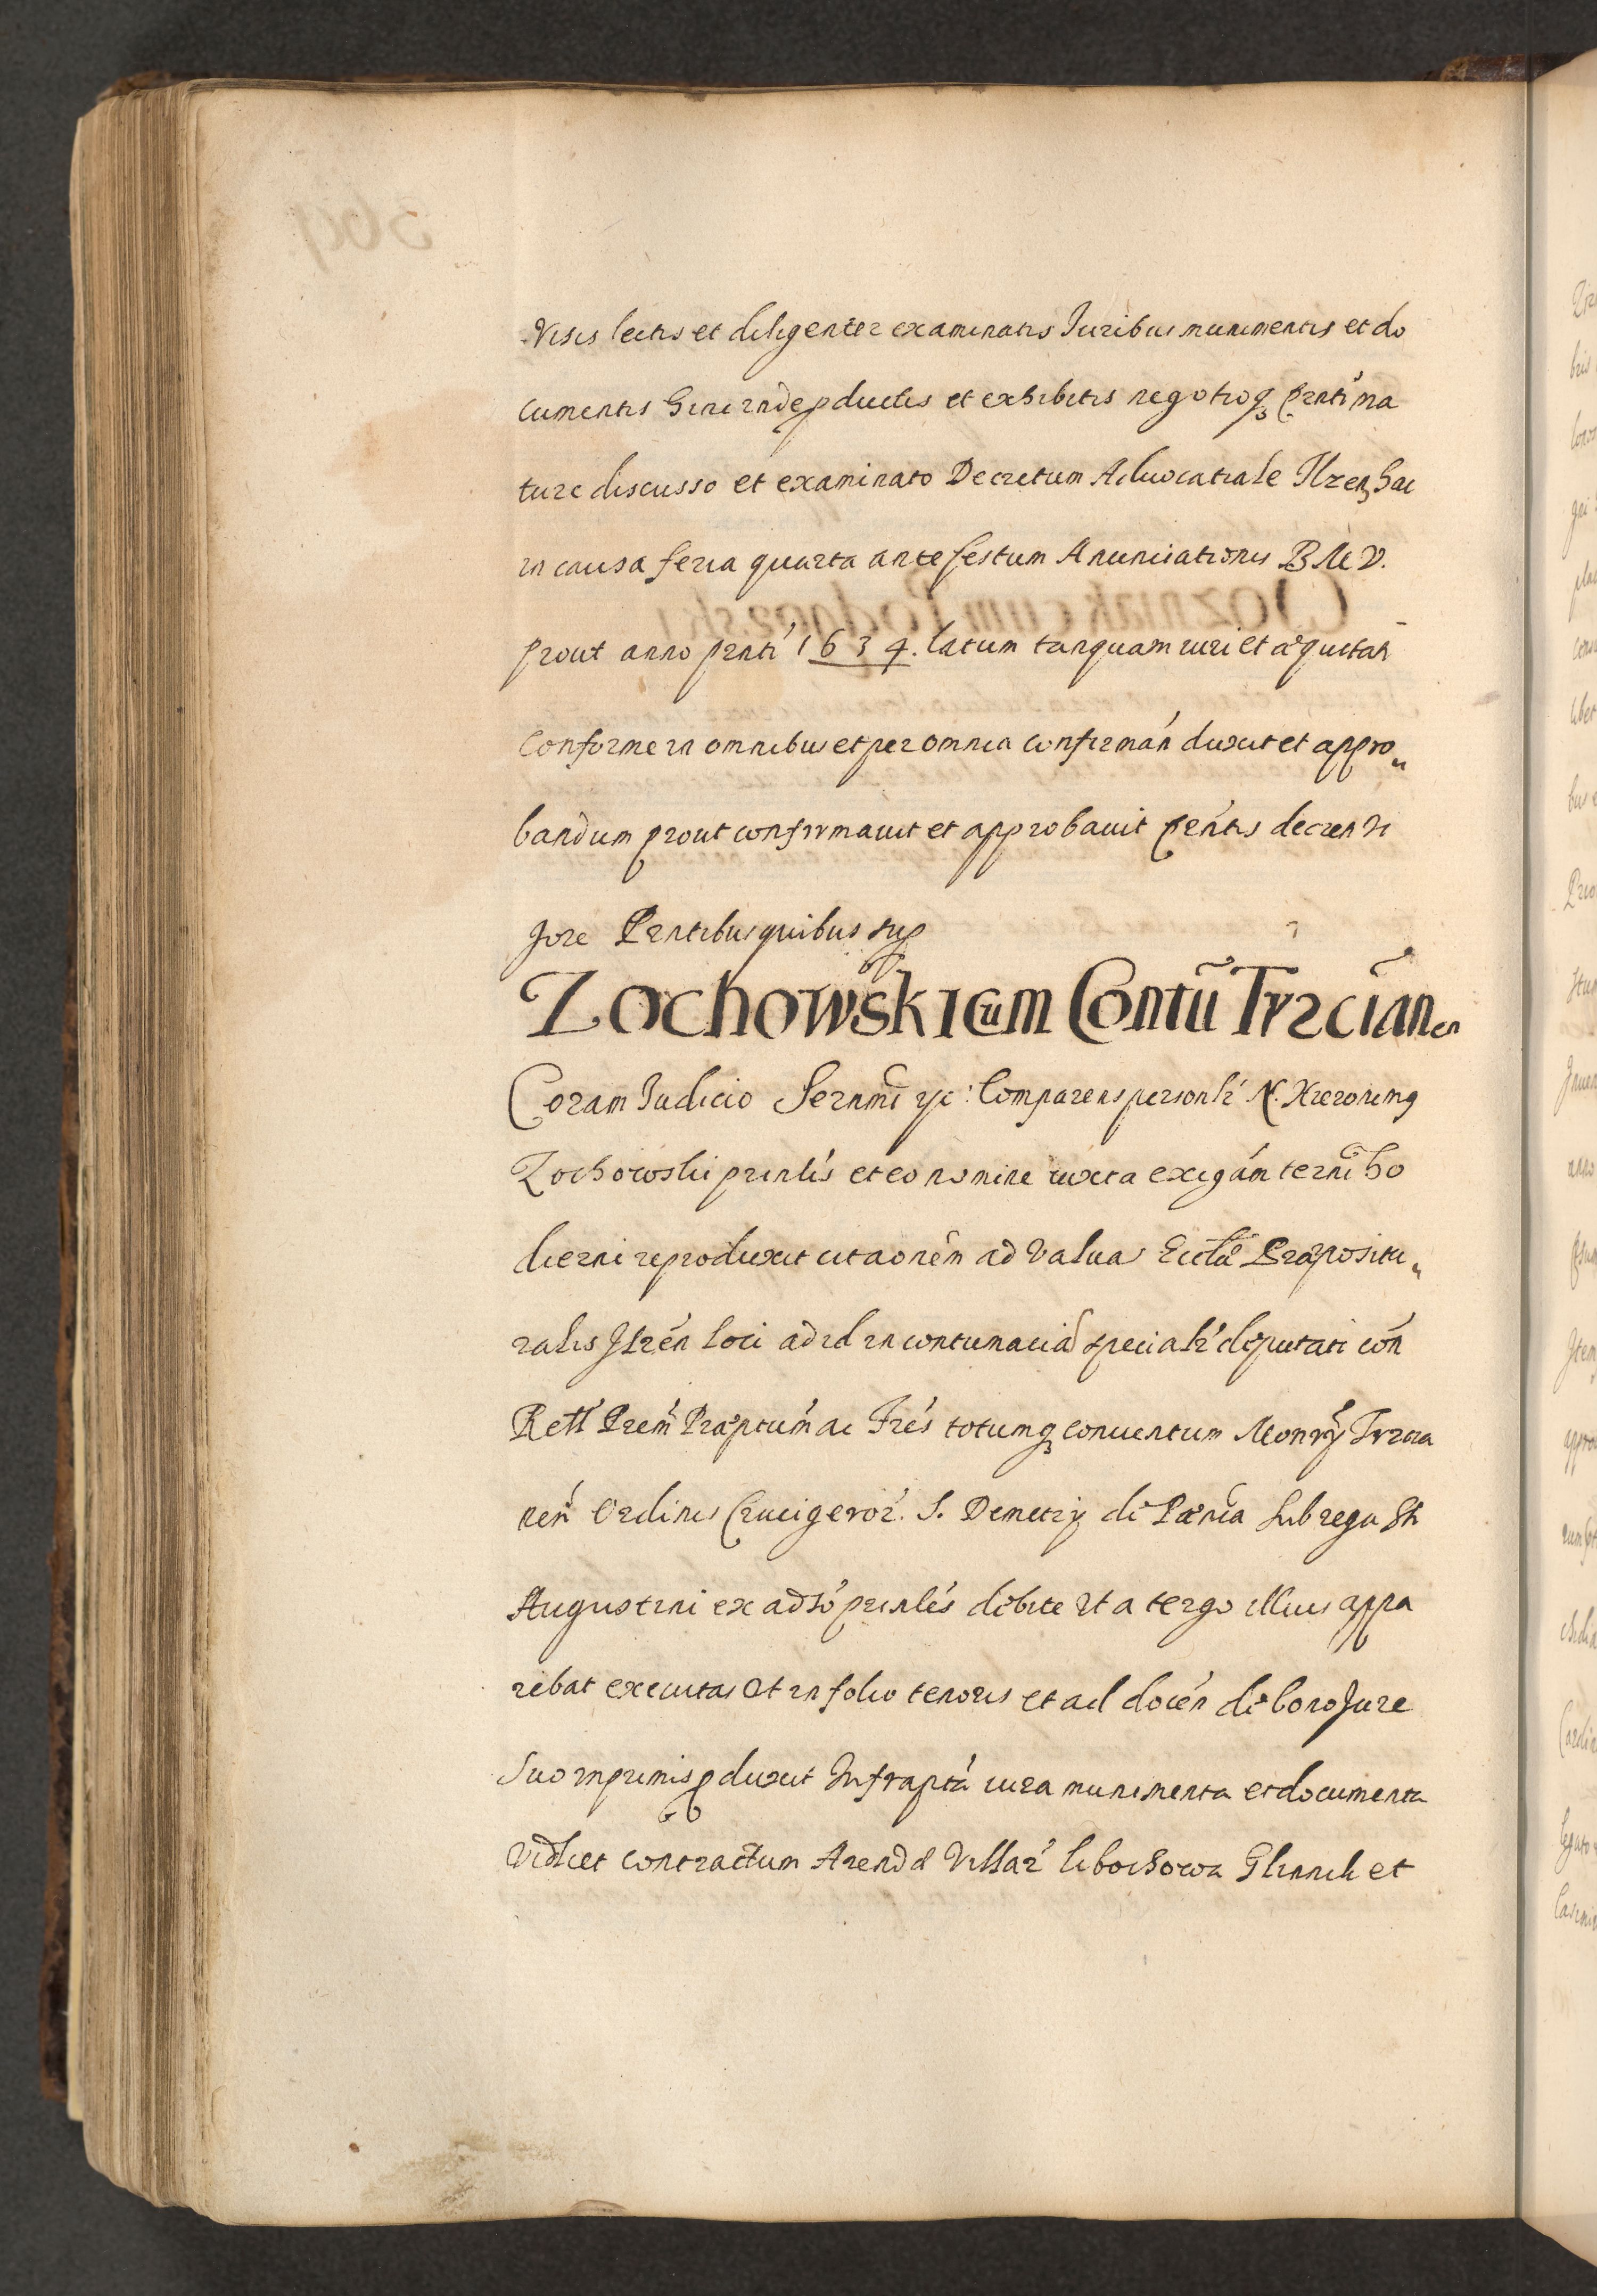 Visis lectis et diligenter examinatis Juribus munimentis et do
cumentis hincinde pductis et exhibitis negotioq; pnti ma
ture discusso et examinato Decretum Aduocatiale Ilzen hac
in causa feria quarta ante festum Anunciationis B M V.
prout anno pnti 1634. latum tanquam iuri et æquitati
Conforme in omnibus et per omnia confirman duxit et appro„
bandum prout confirmauit et approbauit pentis decreti
Jure Partibus quibus sup
Zochowski cum Contũ Trzcianen
Coram Judicio Sernmi &c: Comparens personlr N. Hieronimq
Zochowski prinlis et eo nomine iuxta exigãm termi ho
dierni reproduxit citaonem ad Valuas Eccla Præpositu„
ralis Ilzen loci ad id in contumacia specialr deputati con
Rett Prem Præptum ac Frés totumq; conuentum Monrÿ Trzcia
nen Ordinis Crucigeror. S. Demetrÿ de Pœnia sub regu Sti
Augustini ex adso prinlés debite ut a tergo illius appa
rebat executas Et in folio tenoris et ad docén de bono Jure
Suo inprimis pduxit Infrapta iura munimenta et documenta
Vidlicet contractum Arendæ Villar Libochowa Glinnik et